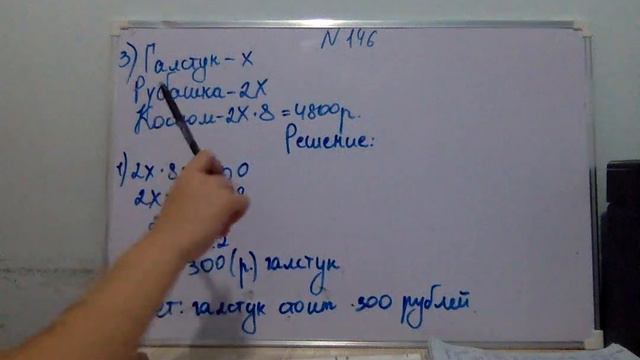 N 146
3) Галстук - х
Рубашка - 2х
Костюм - 2х · 8 = 4800р.
Решение:
1) 2х · 8
2х
300 (р.) галстук
галстук стоит 300 рублей